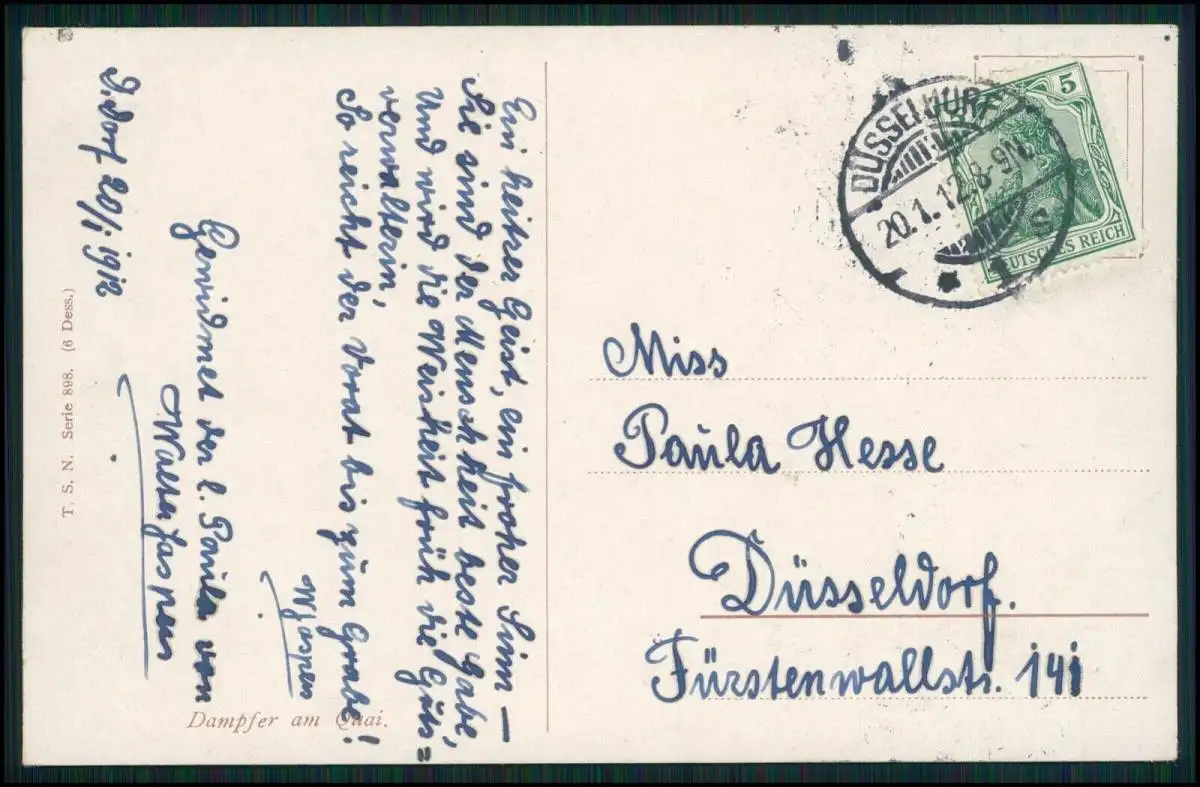 Ein heitrer Geist, ein froher Sinn —
Sie sind der Menschheit beste Gabe,
Und wird die Weisheit früh die Guts=
verwalterin,
So reicht der Vorat bis zum Grabe!
WJaspen
Gewidmet der l. Paula von
Walter Jaspen
D.dorf 20/1 1912
T. S. N. Serie 898. (6 Dess.)
Dampfer am Quai.
5
DEUTSCHES REICH
DÜSSELDORF
20.1.12.8-9N.
1 s
Miss
Paula Hesse
Düsseldorf.
Fürstenwallstr. 141